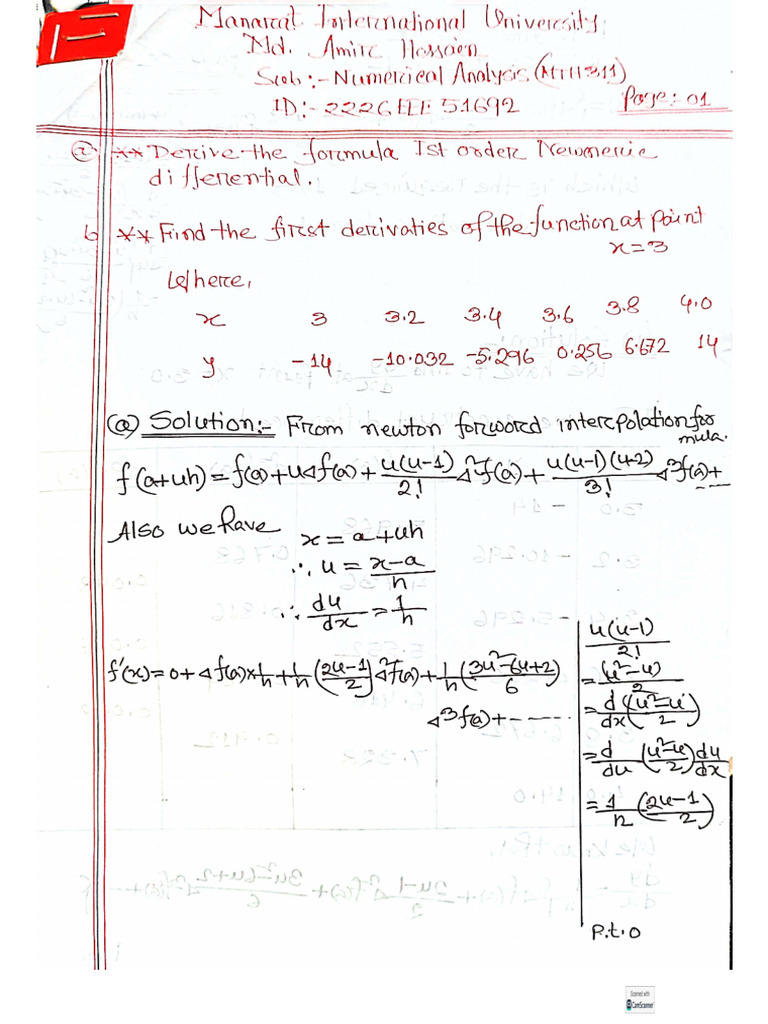 Manarat International University
Md. Amir Hossien
Sub:- Numerical Analysis (MTH311)
ID:- 2226EEE51692
Page:- 01
a ** Derive the formula 1st order Newmeric
differential.
b ** Find the first derivaties of the function at point
x=3
Where,
x 3 3.2 3.4 3.6 3.8 4.0
y -14 -10.032 -5.296 0.256 6.672 14
(a) Solution:- From newton forword interpolation for
mula.
f(a+uh)=f(a)+uΔf(a)+u(u-1)/2! Δ²f(a)+u(u-1)(u-2)/3! Δ³f(a)+---
Also we have
x=a+uh
∴ u = (x-a)/h
∴ du/dx = 1/h
f'(x)=0+Δf(a)×1/h+1/h((2u-1)/2)Δ²f(a)+1/h((3u²-6u+2)/6)
Δ³f(a)+-----
u(u-1)/2!
=(u²-u)/2
=d/dx((u²-u)/2)
=d/du((u²-u)/2)du/dx
=1/h((2u-1)/2)
P.t.o
Scanned with
CamScanner